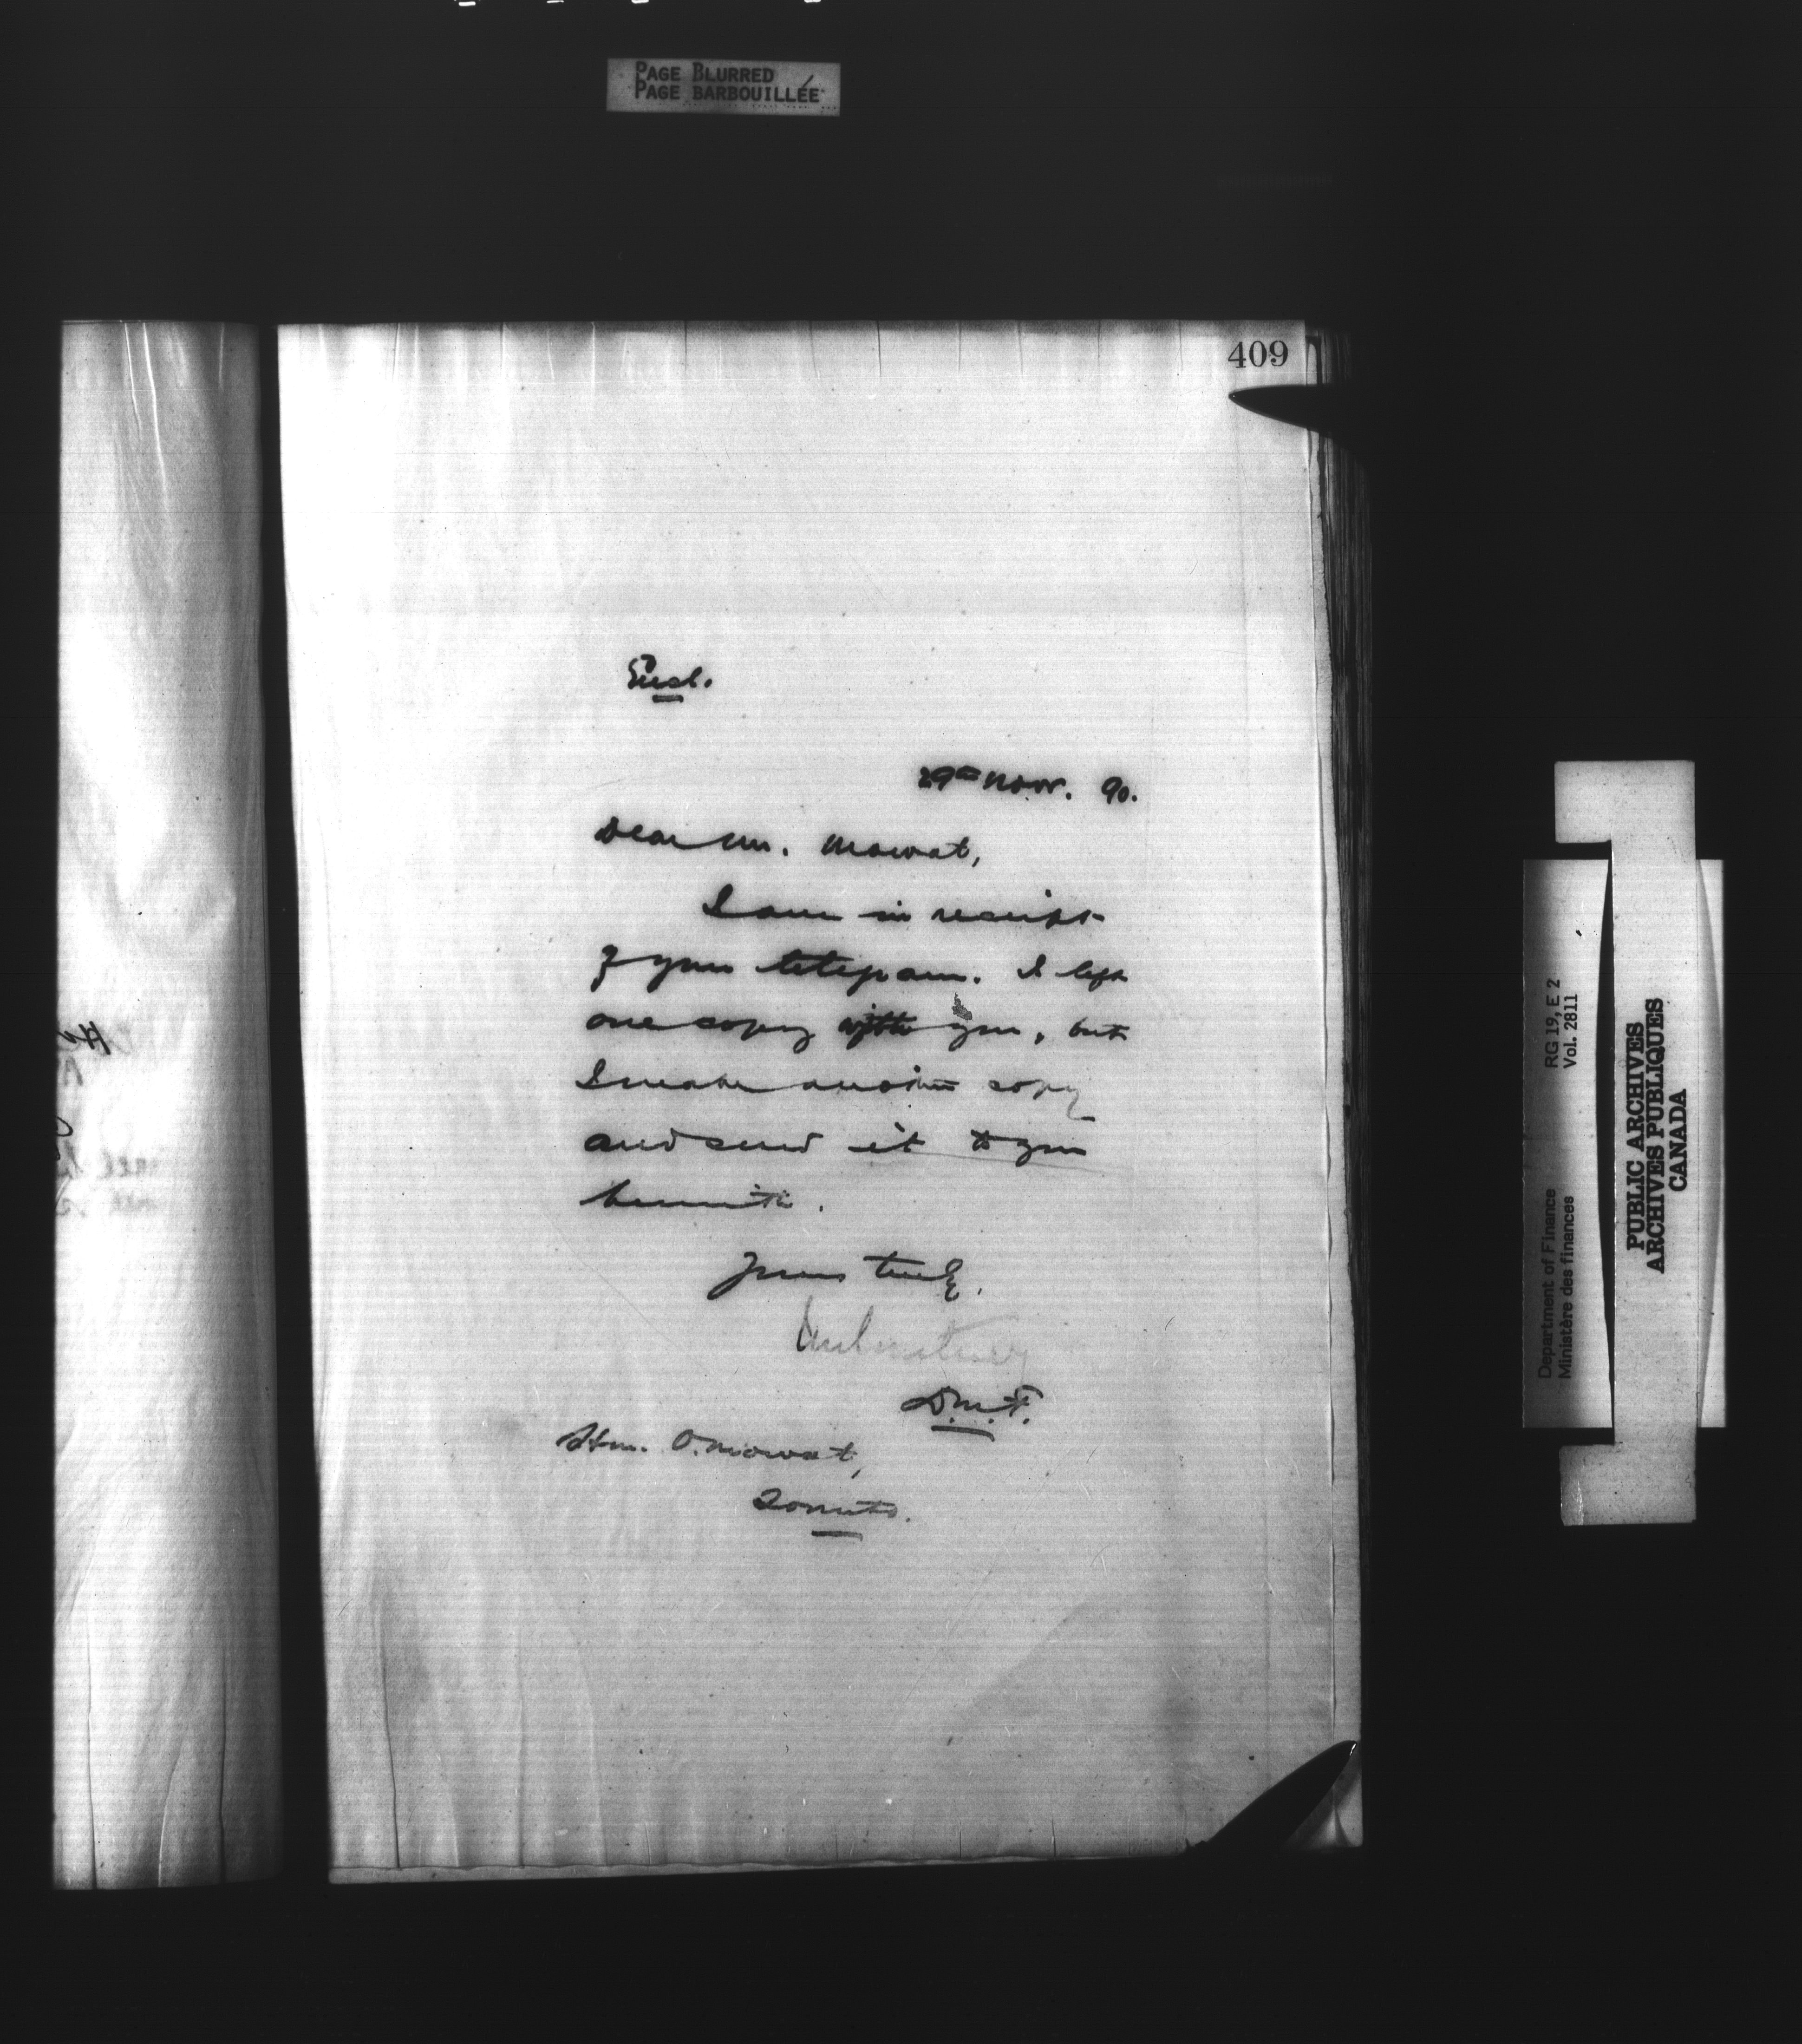 PAGE BLURRED
PAGE BARBOUILLÉE
409
Encl.
29th Nov. 90.
Dear Mr. Mowat,
I am in receipt
of your telegram. I left
one copy with you, but
I make another copy
and send it to you
herewith.
Yours truly,
D.M.F.
Hon. O. Mowat,
Toronto.
RG 19, E 2
Vol. 2811
Department of Finance
Ministère des finances
PUBLIC ARCHIVES
ARCHIVES PUBLIQUES
CANADA